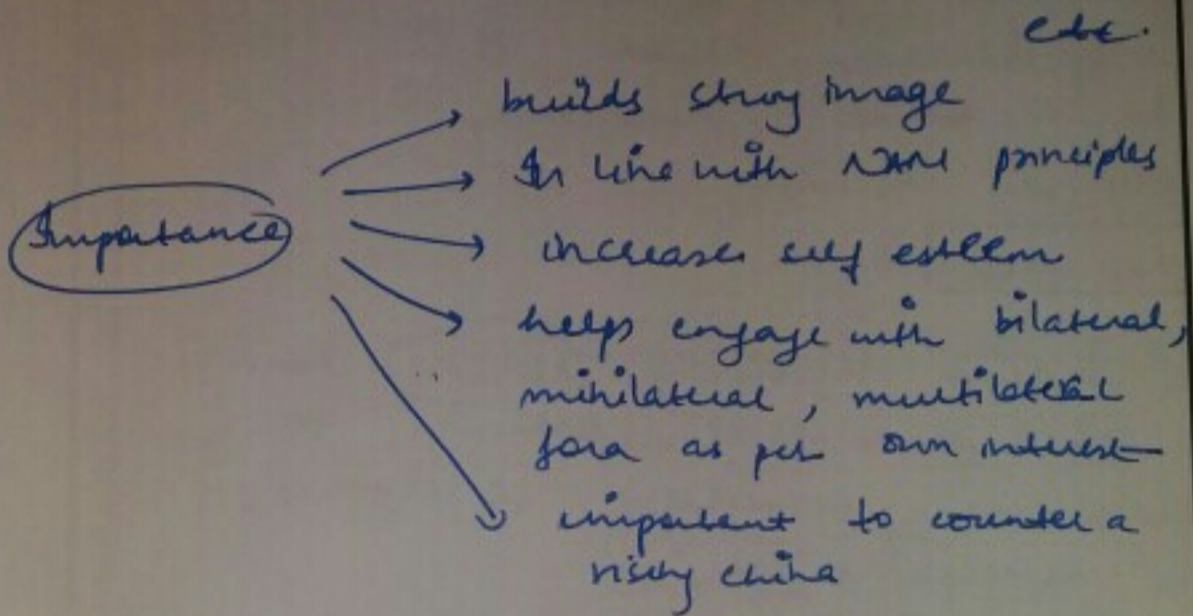 etc.
builds strong image
In line with NAM principles
Importance
increases self esteem
helps engage with bilateral,
minilateral, multilateral
fora as per own interest
important to counter a
rising china